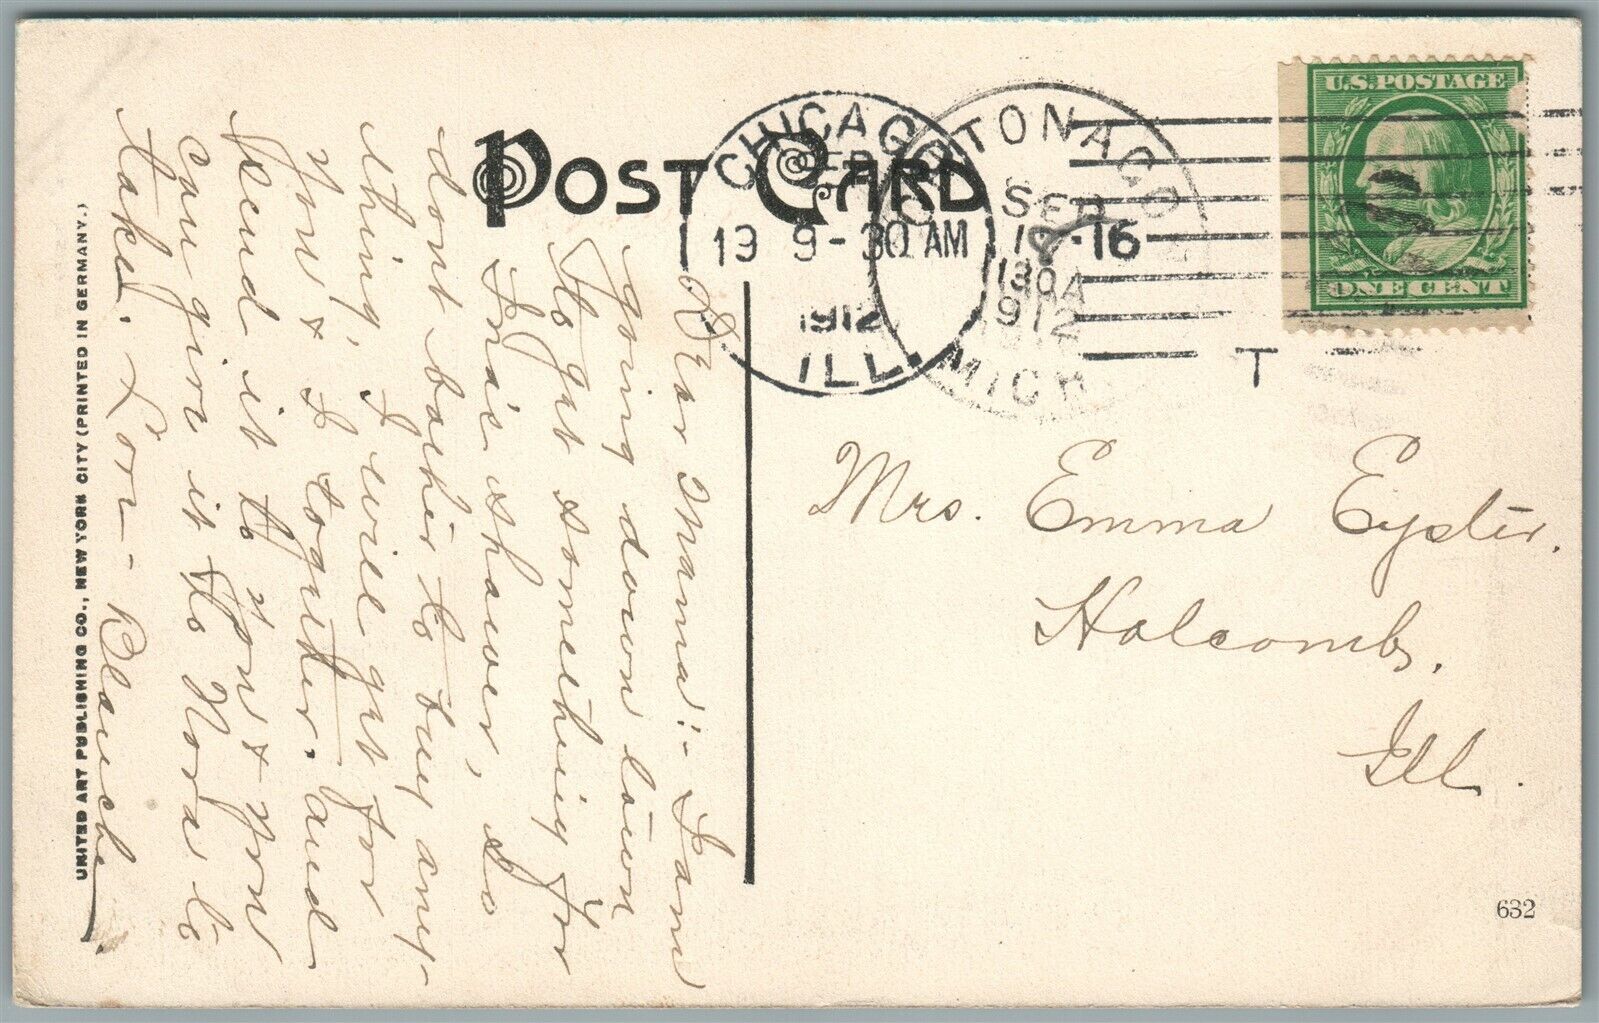 POST CARD
CHICAGO
SEP
19 9-30 AM
1912
ILL.
ONTONAGO
SEP
16
130 A
1912
MICH
T
U.S. POSTAGE
ONE CENT
Dear Mama:- I am
going down town
to get something for
Ina's shower, so
dont bother to buy any-
thing, I will get for
you & I together. and
send it to you & you
can give it to Nora to
take. Love - Blanche.
Mrs. Emma Eyster.
Holcomb,
Ill.
632
UNITED ART PUBLISHING CO., NEW YORK CITY (PRINTED IN GERMANY.)